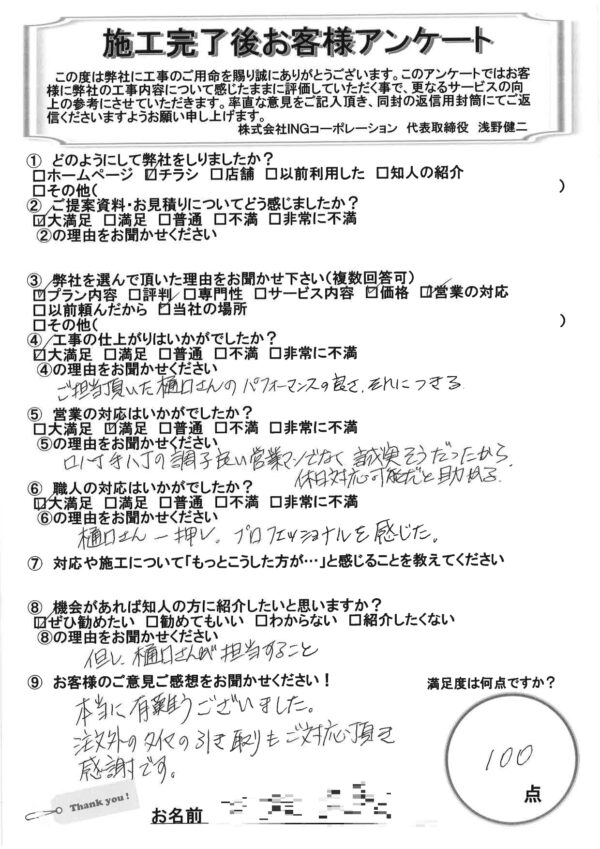 施工完了後お客様アンケート
この度は弊社に工事のご用命を賜り誠にありがとうございます。このアンケートではお客
様に弊社の工事内容について感じたままに評価していただく事で、更なるサービスの向
上の参考にさせていただきます。率直な意見をご記入頂き、同封の返信用封筒にてご返
信くださいますようお願い申し上げます。
株式会社INGコーポレーション 代表取締役 浅野健二
① どのようにして弊社をしりましたか?
□ホームページ ☑チラシ □店舗 □以前利用した □知人の紹介
□その他( )
② ご提案資料・お見積りについてどう感じましたか?
☑大満足 □満足 □普通 □不満 □非常に不満
②の理由をお聞かせください
③ 弊社を選んで頂いた理由をお聞かせ下さい(複数回答可)
☑プラン内容 □評判 □専門性 □サービス内容 ☑価格 ☑営業の対応
□以前頼んだから ☑当社の場所
□その他( )
④ 工事の仕上がりはいかがでしたか?
☑大満足 □満足 □普通 □不満 □非常に不満
④の理由をお聞かせください
ご担当頂いた樋口さんのパフォーマンスの良さ、それにつきる
⑤ 営業の対応はいかがでしたか?
□大満足 ☑満足 □普通 □不満 □非常に不満
⑤の理由をお聞かせください
口八丁手八丁の調子良い営業マンでなく誠実そうだったから。
休日対応可能だと助かる。
⑥ 職人の対応はいかがでしたか?
☑大満足 □満足 □普通 □不満 □非常に不満
⑥の理由をお聞かせください
樋口さん一押し。プロフェッショナルを感じた。
⑦ 対応や施工について「もっとこうした方が…」と感じることを教えてください
⑧ 機会があれば知人の方に紹介したいと思いますか?
☑ぜひ勧めたい □勧めてもいい □わからない □紹介したくない
⑧の理由をお聞かせください
但し、樋口さんが担当すること
⑨ お客様のご意見ご感想をお聞かせください!
満足度は何点ですか?
本当に有難うございました。
注文外のタイヤの引き取りもご対応頂き
感謝です。
100
点
Thank you!
お名前